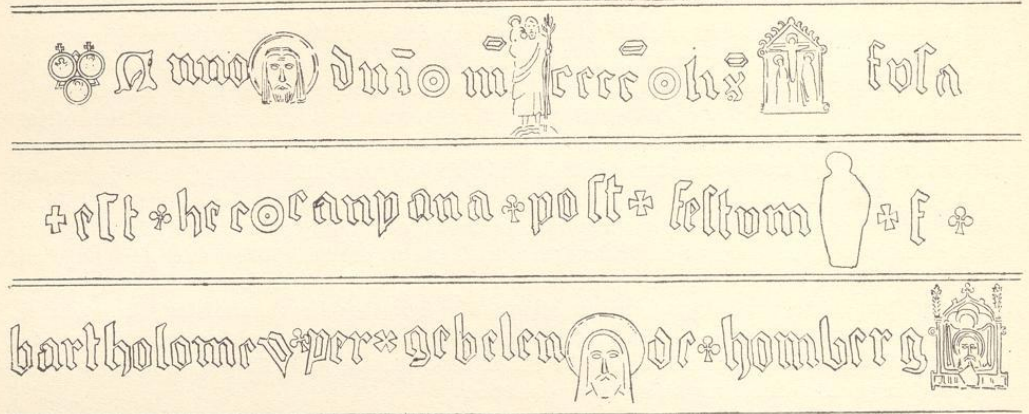 Anno dnī m̄ cccc̄ lix̄ fvſa
eſt hec canpana poſt feſtvm ſ
bartholomev per gebelen de homberg